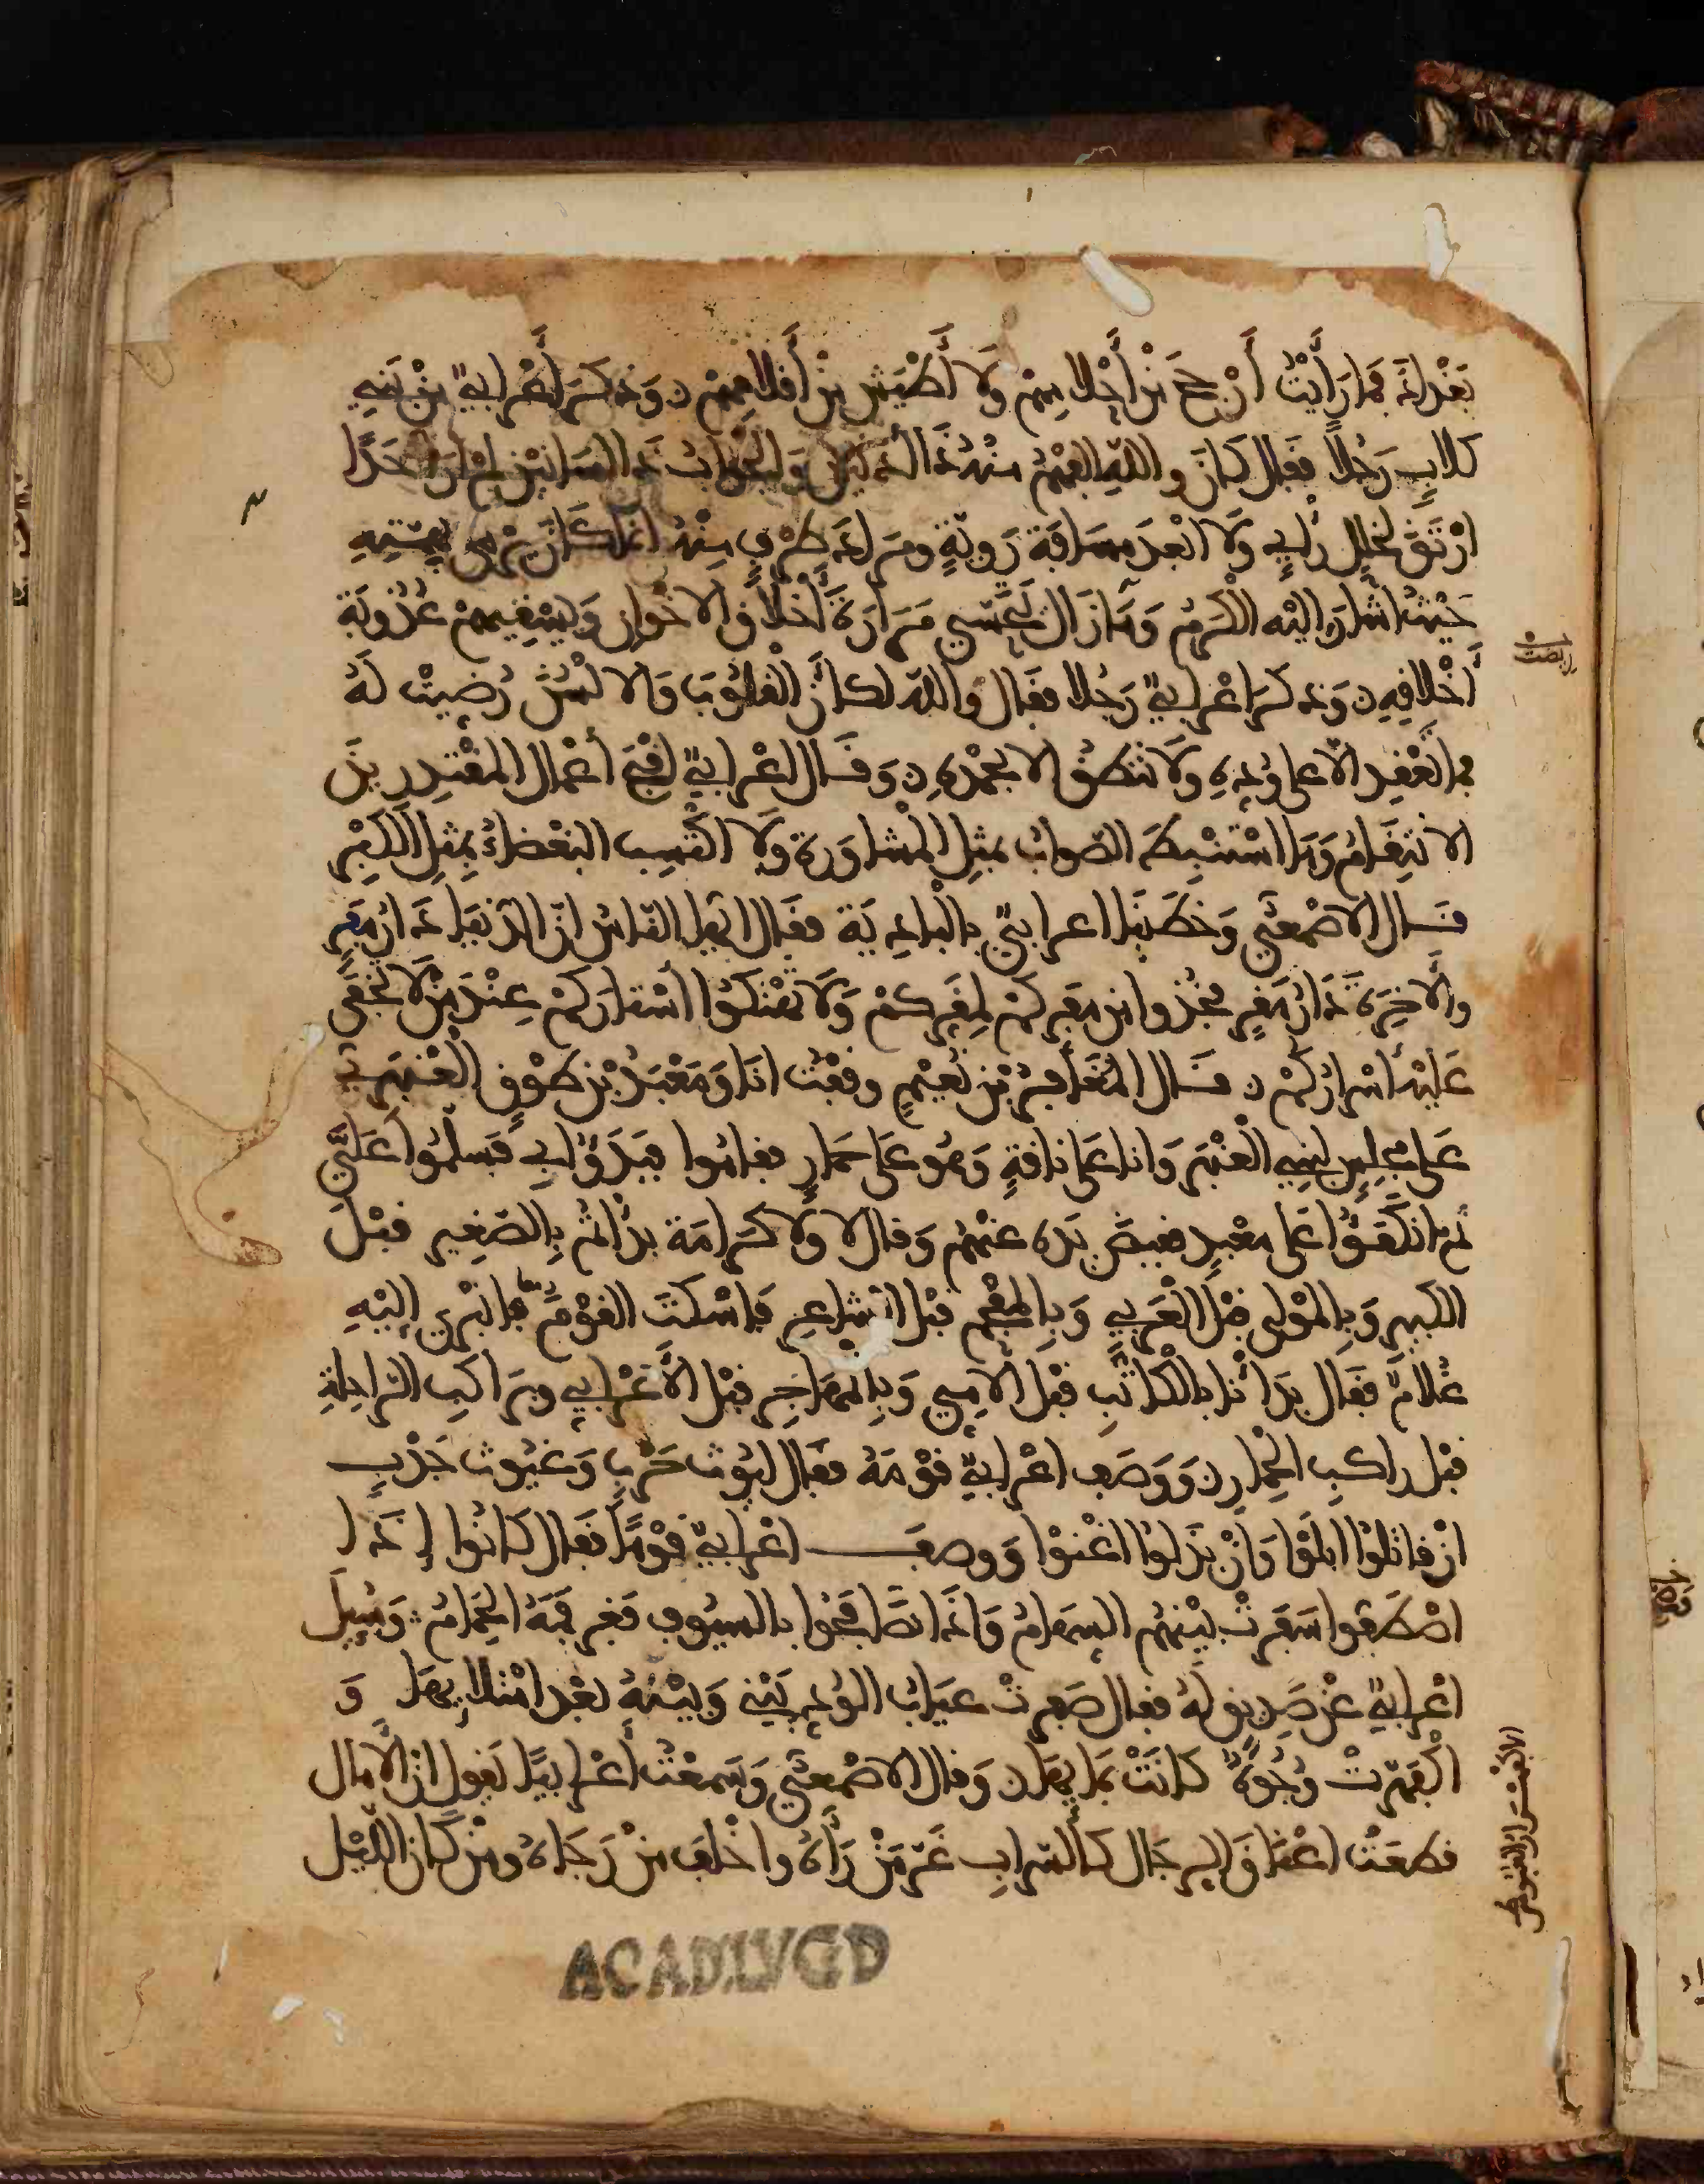 بَغْدَاذَ فَمَا رَأَيْتُ أَرْجَحَ مِنْ أَحْلَامِهِمْ وَلَا أَطْيَشَ مِنْ أَقْلَامِهِمْ وَذَكَرَ أَعْرَابِيٌّ مِنْ بَنِي
كلابٍ رَجُلًا فَقَالَ كَانَ واللهِ الفَهْمُ مِنْهُ ذَا أُذُنَيْنِ وَالجَوَابُ ذَا لِسَانَيْنِ لَمْ أَرَ أَحَدًا
ارْتَقَ لِخَلَلِ رأيٍ وَلَا ابْعَدَ مسَافَةَ رَوِيَّةٍ ومَرَادَ طَرْفٍ مِنْهُ انما كَانَ يَرْمِي بِهِمَّتِهِ
حَيْثُ اشَارَ اليْه الْكَرَمُ وَمَا زَالَ يَتَحَسَّى مَرَارَةَ أَخْلَاقِ الاخْوَانِ وَيَسْقِيهِمْ عُذُوبَةَ
أَخْلاقِهِ وَذكَرَ اعْرَابِيٌّ رَجُلا فقَالَ واللهِ لكأنَّ الْقُلُوبَ وَالالْسُنَ رُضِيَتْ لَهُ
فما تَعْقِد الّا على وُدِهِ وَلَا تَنْطِقُ الا بحَمْدِهِ وَقَالَ اعْرَابِيٌّ أَقْبَحُ أَعْمَالِ المُقْتَدِرِينَ
الانتِقَامُ وَمَا اسْتُنْبِطَ الصَّوابُ بمثِلِ الْمُشَاوَرةِ وَلَا اكْتُسِبَ البَغْضاءُ بِمِثِلِ الكِبْرِ
قَالَ الاصْمَعِيُّ وَخَطَبَنَا اعرابيٌّ بِالْبَادِيَةِ فقَالَ ايهَا النَّاسُ انَّ الدّنيَا دَارُ مَمَرٍّ
والْأخِرَةَ دَارُ مَقَرٍّ فخُذُوا مِن مَمَرِكُمْ لِمَقَرِّكُمْ وَلَا تَهْتِكُوا أسْتَارَكُمْ عِنْدَ مَنْ لَا تَخْفَى
عَلَيْهِ أسْرارُكُمْ قَالَ المُغَامِرُ بْنِ نُعَيْمٍ وقَفْتُ انَا وَمَعْبَدُ بْنِ طَوْقٍ الْعَنْبَرِيُّ
عَلى مَجْلِسٍ لِبَنِي الْعَنْبَرِ وَانا عَلى نَاقَةٍ وَهُو عَلَى حَمَارٍ فقامُوا فَبَدَؤُا بِي فَسَلَّمُوا عَلَيَّ
ثمَّ انكَفَؤُا عَلى معْبَدٍ فقبضَ يَدَه عنْهُمْ وَقالَ لا وَلَا كَرَامَةَ بدَأتُمْ بِالصَّغِيرِ قَبْلَ
الكَبِيرِ وَبِالمَوْلى قَبْلَ الْعَرَبِي وَبِالمُفْحَمِ قبْل الشاعِرِ فاسْكَتَ القَوْمُ فانْبَرَى إليْهِ
غُلَامٌ فقَال بدَأنَا بالْكَاتِبِ قبْلَ الأُمِّيِّ وَبِالمُهَاجِرِ قبْل الْأَعْرَابِي وبرَاكِب الرّاحِلةِ
قبْل راكبِ الحِمارِ وَوَصَف اعْرَابِيٌّ قَوْمَهُ فقَالَ لُيُوثُ حَرْبٍ وَغُيُوثُ جَدْبٍ
انْ قاتلُوا ابلَوْا وَانْ بَذَلُوا اغْنوْا وَوصفَ اعْرَابيٌّ قَوْمًا فقَال كَانُوا إذَا
اصْطَفُّوا سَفَرَتْ بيْنهُم السِهامُ وَاذَا تصَافَحُوا بالسيُوف فغَر فمَهُ الحِمَامُ وَسُئِلَ
اعْرَابيٌّ عَنْ صَدِيقٍ لهُ فقال صَفِرَتْ عيَابُ الوُدِ بَيْنِي وَبيْنَهُ بعْدَ امْتِلائِهَا وَ
اكْفَهَرَّتْ وُجُوهٌ كانَتْ بِمَايِهَا وَقال الاصْمَعيُّ وَسَمِعْتُ أعْرَابيًّا يَقول ان الأمَال
قطعَتْ اعْنَاقَ الرِجَال كَالسَّرابِ غَرَّ مَنْ رَأَهُ واخْلفَ مَنْ رَجَاهُ ومَنْ كَانَ اللَّيْل
ACAD.LVGD